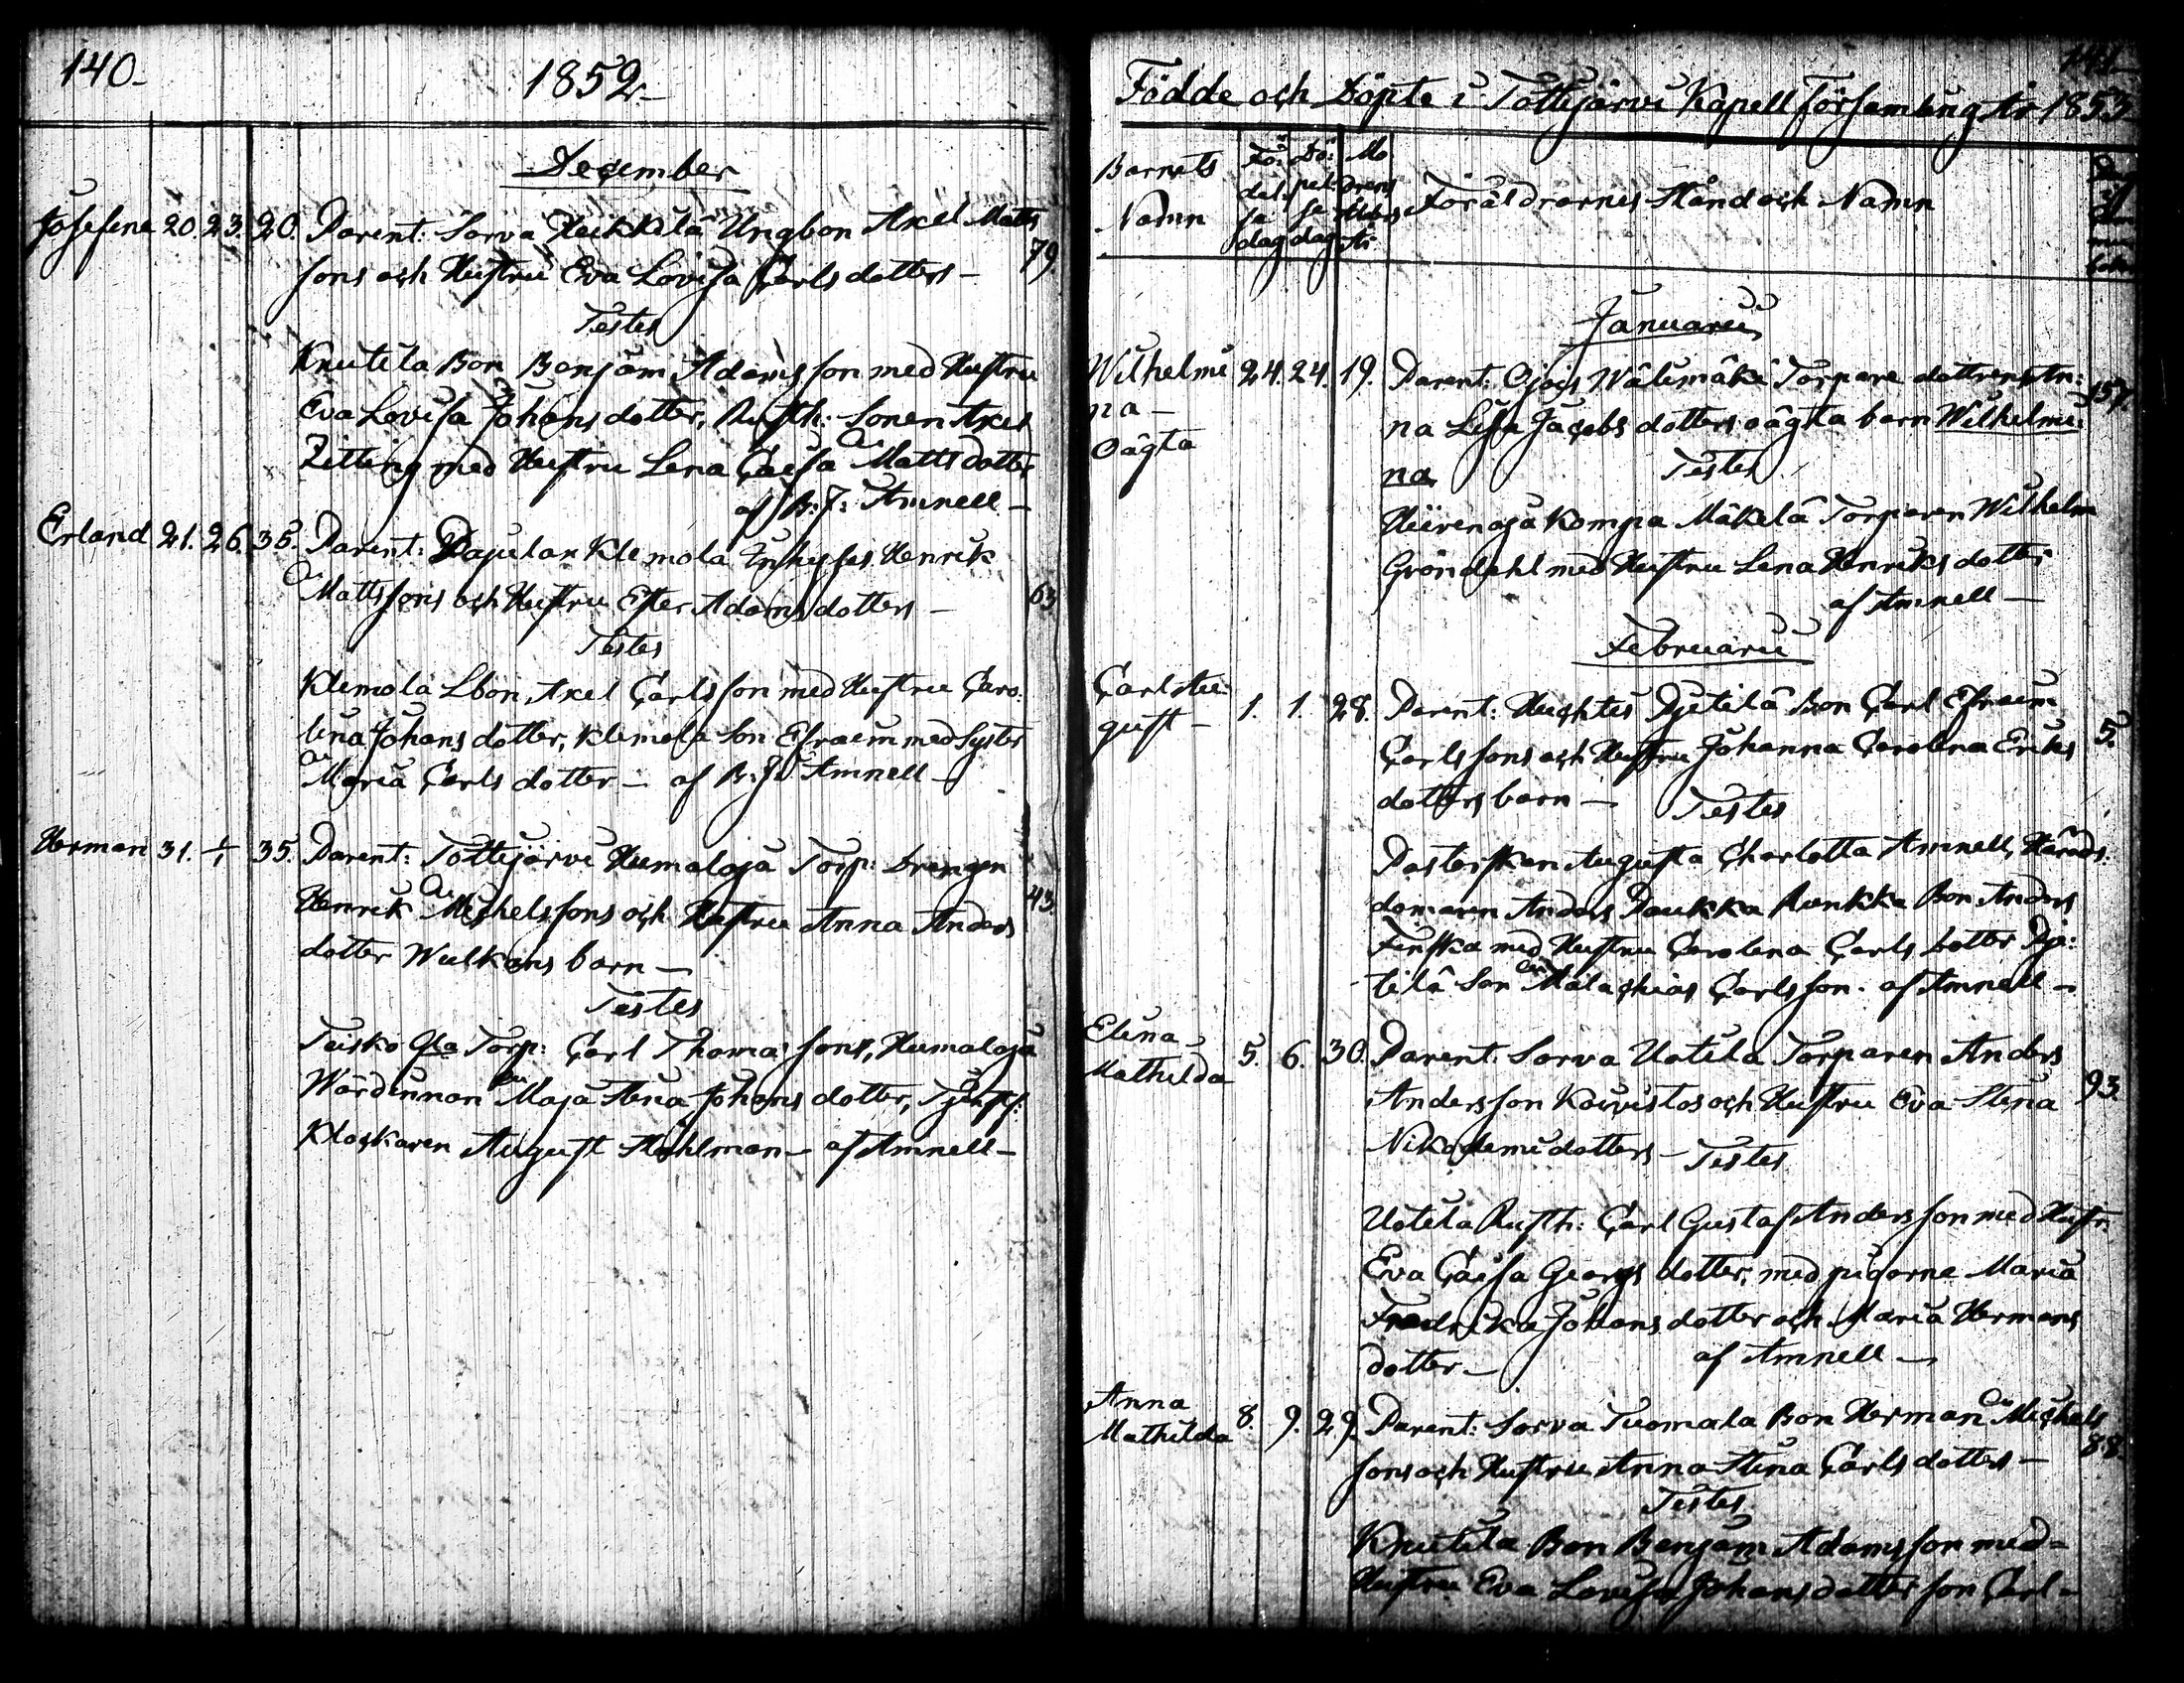 140-
1852-
December
Josefina 20. 23. 20. Parent: Sorva Heikkilä Ungbon Axel Matts
sons och Hustru Eva Lovisa Carls dotters- 79.
Testes
Knutila Bon Benjam Adamsson med Hustru
Eva Lovisa Johansdotter, Rusth: Sonen Axel
Zitting med Hustru Lena Caisa Mattsdotter
af B: J: Amnell-
Erland 21. 26. 35. Parent: Pajulax Klemola Inhyses Henrik
Mattssons och Hustru Ester Adamsdotters- 63
Testes
Klemola Lbon, Axel Carlsson med Hustru Caro:
lina Johansdotter, Klemola Son Efraim med Syster
Maria Carlsdotter- af B. J. Amnell-
Herman 31. 1/1 35. Parent: Tottijärvi Humaloja Torp: Drengen
Henrik Michelssons och Hustru Anna Anders 43.
dotter Wulkans barn-
Testes
Teisko Ala Torp: Carl Thomas sons, Humaloja
Wärdinnan Maja Stina Johansdotter, Tjenstf:
Klockaren August Ståhlman- af Amnell-
141-
Födde och Döpte i Tottijärvi Kapell Församling År 1853
Barnets Namn
Fö: del: se dag
Dö: pel: se dag
Mo drens Ålder År
Föräldrarnes Stånd och Namn
Januarii
Wilhelmi 24. 24. 19. Parent: Ojois Wälimäki Torpare dottrens An: 157
na- na Lisa Jacobs dotters oägta barn Wilhelmi:
Oägta na Testes
Hiirenoja Kompa Mäkelä Torparen Wilhelm
Gröndahl med Hustru Lena Henriksdotter
af Amnell-
Februarii
Carl Au: 1. 1. 28. Parent: Huchtis Pjetilä Bon Carl Efraim
gust- Carlssons och Hustru Johanna Carolina Eriks 5.
dotters barn- Testes
Pastorskan Augusta Charlotta Amnell, Härads:
domaren Anders Paukka Runkka Bon Anders
Finska med Hustru Carolina Carls dotter Pje:
tilä Son Malachias Carlsson. af Amnell-
Elina 5. 6. 30. Parent: Sorva Uotila Torparen Anders
Mathilda Andersson Koivistos och Hustru Eva Stina 93.
Nikodemidotters- Testes
Uotila Rusth: Carl Gustaf Andersson med Hustr:
Eva Caisa Georgs dotter, med pigorne Maria
Fredrika Johans dotter och Maria Hermans
dotter- af Amnell-
Anna 8. 9. 29. Parent: Sorva Tuomala Bon Herman Michels
Mathilda sons och Hustru Anna Stina Carls dotters- 88.
Testes
Knutila Bon Benjam Adamsson med-
Hustru Eva Lovisa Johansdotter son Carl-